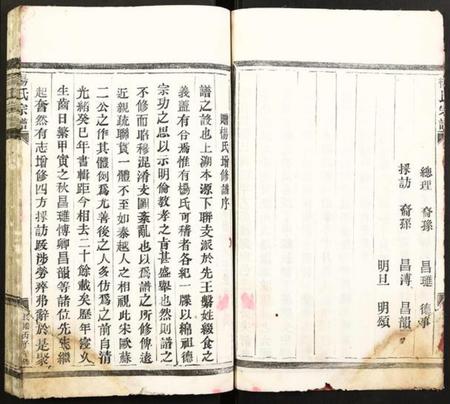 總理 裔孫 昌璉 德事
採訪 裔孫 昌溥 昌韻
明旦 明頌
贈楊氏增修譜序
譜之設也上溯本源下聯支派於先王繫姓綴食之
義蓋有合焉惟有楊氏可稽者各紀一牒以綿祖德
宗功之思以示明倫教孝之肯甚盛舉也然則譜之
不修而昭穆混淆支圖紊亂也以為譜之所修俾遠
近親疏聯貫一體不至如秦越人之相視此宋歐蘇
二公之作其體例為尤善後之人多仿為之前自清
光緒癸巳年書輯距今相去二十餘載矣歷年寖久
生齒日繁甲寅之秋昌璉博卿昌韻等諸位先生繼
起奮然有志增修四方採訪跋涉勞瘁弗辭於是聚
楊氏宗譜